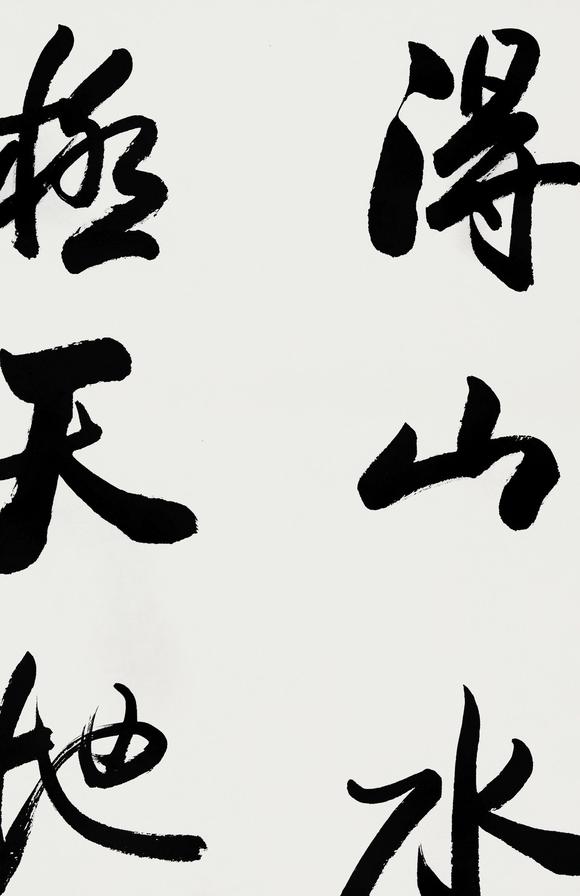 得山水
極天地